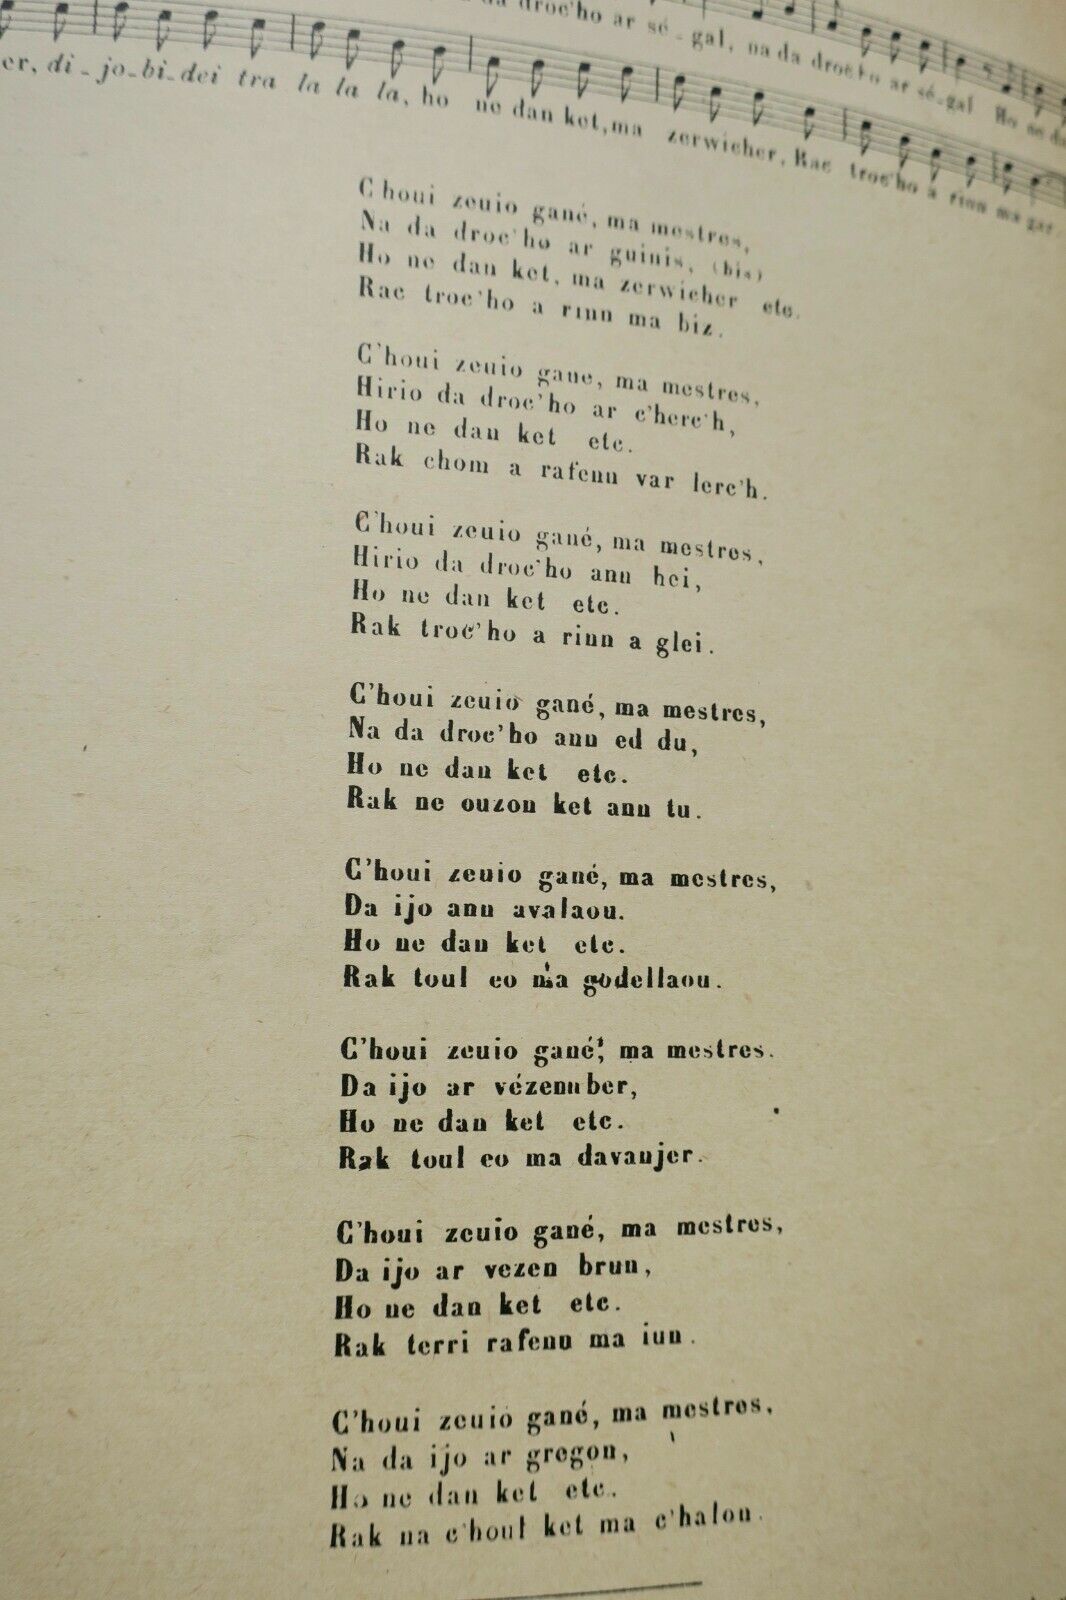 da droc'ho ar sé-gal, na da droc'ho ar sé-gal Ho ne da
er, di-jo-bi-dei tra la la la, ho ne dan ket, ma zerwicher, Rac troc'ho a rinn ma gar.
C'houi zeuio gané, ma mestres,
Na da droc'ho ar guinis, (bis)
Ho ne dan ket, ma zerwicher etc.
Rac troc'ho a rinn ma biz.
C'houi zeuio gane, ma mestres,
Hirio da droc'ho ar c'herc'h,
Ho ne dan ket etc.
Rak chom a rafenn var lerc'h.
C'houi zeuio gané, ma mestres,
Hirio da droc'ho ann hei,
Ho ne dan ket etc.
Rak troc'ho a rinn a glei.
C'houi zeuio gané, ma mestres,
Na da droc'ho ann ed du,
Ho ne dan ket etc.
Rak ne ouzon ket ann tu.
C'houi zeuio gané, ma mestres,
Da ijo ann avalaou.
Ho ne dan ket etc.
Rak toul eo ma godellaou.
C'houi zeuio gané, ma mestres.
Da ijo ar vézennber,
Ho ne dan ket etc.
Rak toul eo ma davanjer.
C'houi zeuio gané, ma mestres,
Da ijo ar vezen brun,
Ho ne dan ket etc.
Rak terri rafenn ma iun.
C'houi zeuio gané, ma mestres,
Na da ijo ar gregon,
Ho ne dan ket etc.
Rak na c'houl ket ma c'halon.